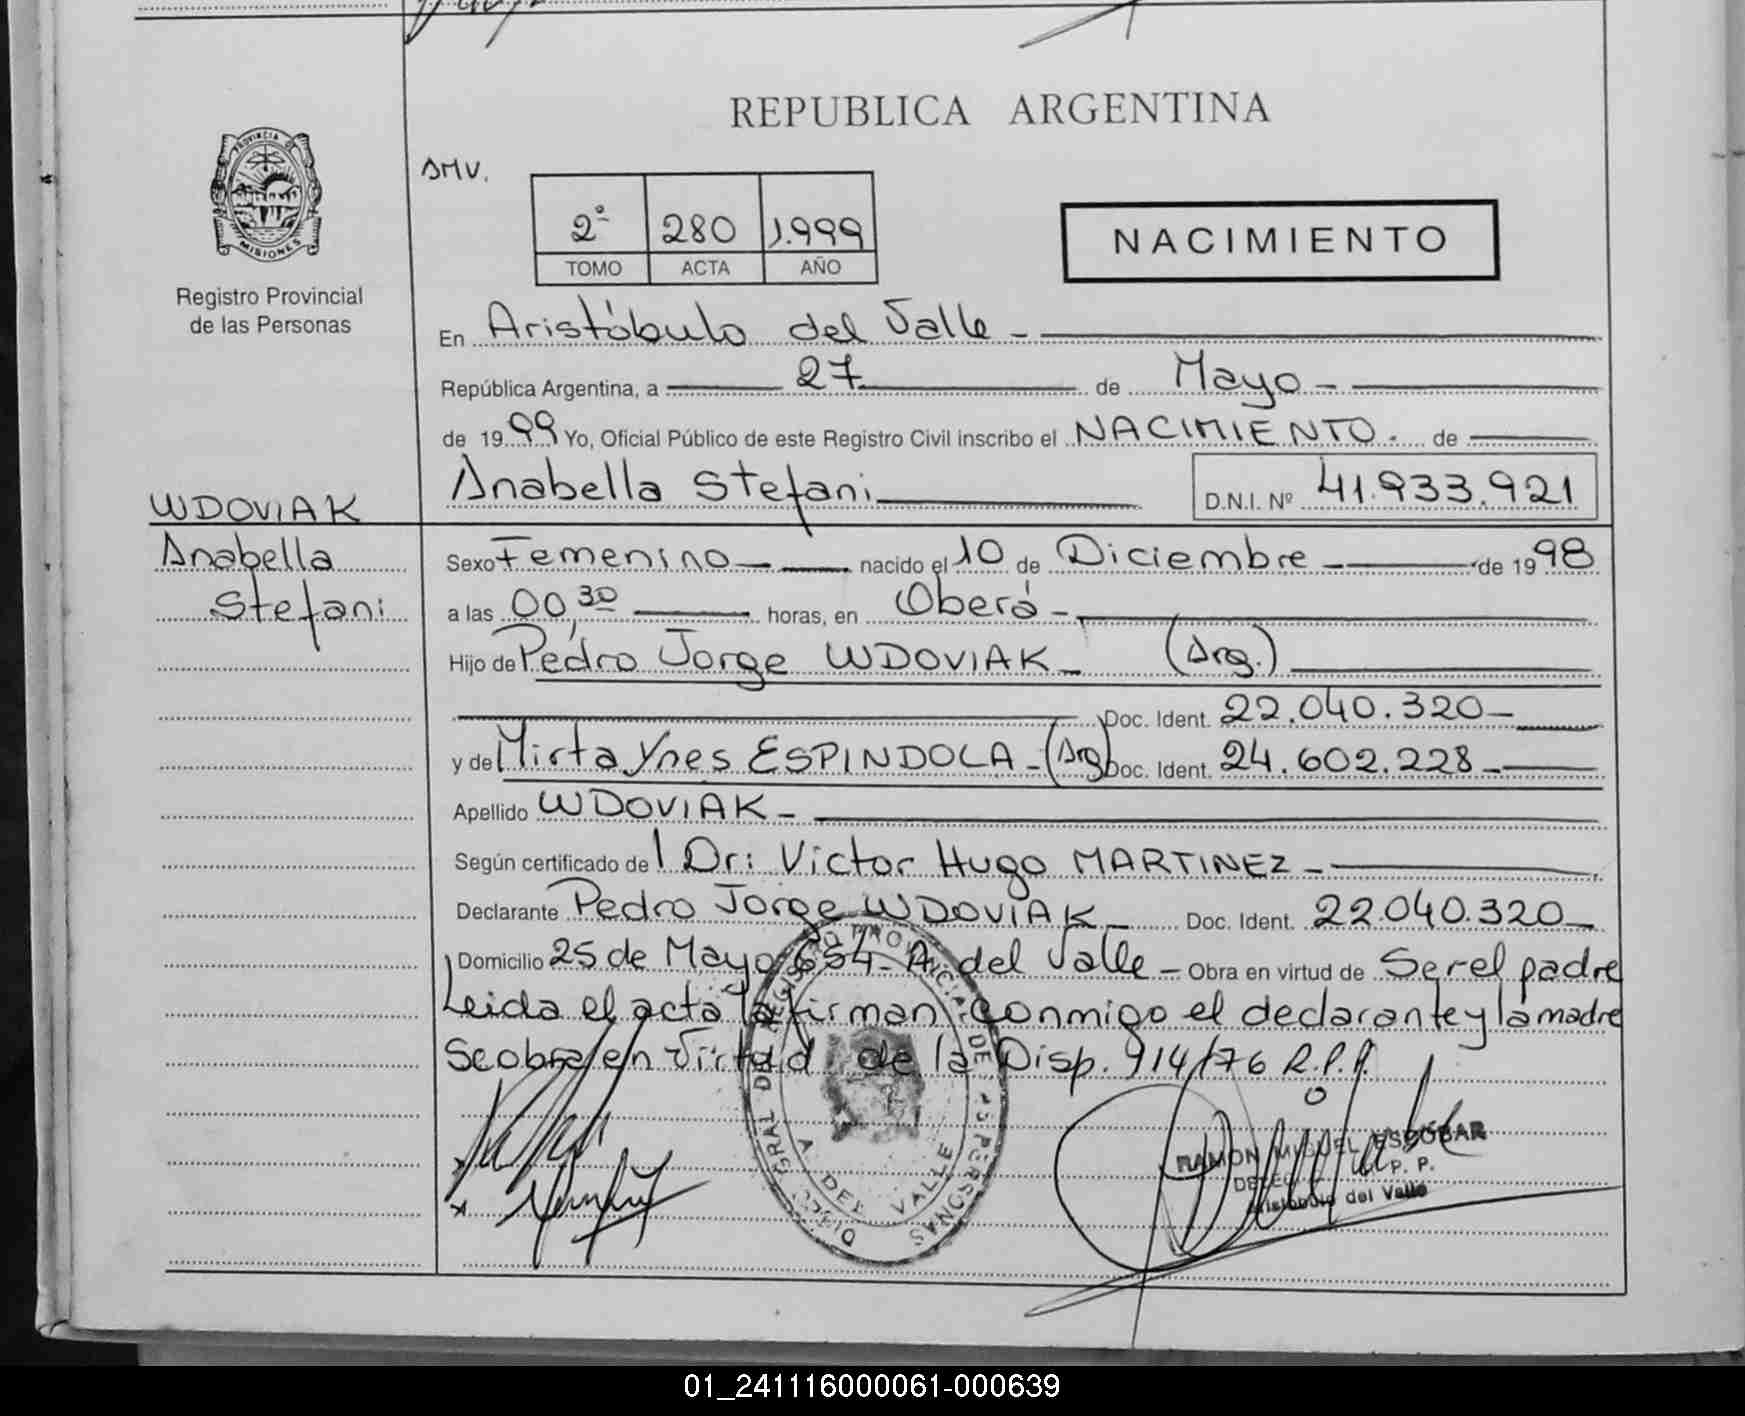 REPUBLICA ARGENTINA
PROVINCIA DE
MISIONES
Registro Provincial
de las Personas
AMV.
2º 280 1.999
TOMO ACTA AÑO
NACIMIENTO
En Aristóbulo del Valle -
República Argentina, a 27 de Mayo -
de 1999 Yo, Oficial Público de este Registro Civil inscribo el NACIMIENTO. de
Anabella Stefani D.N.I. Nº 41.933.921
WDOVIAK
Anabella
Stefani
Sexo Femenino - nacido el 10 de Diciembre - de 1998
a las 00,30 horas, en Oberá -
Hijo de Pedro Jorge WDOVIAK - (Arg.)
Doc. Ident. 22.040.320 -
y de Mirta Ynes ESPINDOLA - (Arg) Doc. Ident. 24.602.228 -
Apellido WDOVIAK -
Según certificado de l Dr: Victor Hugo MARTINEZ -
Declarante Pedro Jorge WDOVIAK - Doc. Ident. 22.040.320 -
Domicilio 25 de Mayo 654 - A. del Valle - Obra en virtud de Ser el padre
Leida el acta la firman conmigo el declarante y la madre
Se obra en virtud de la Disp. 914/76 R.P.P.
DIRECC. GRAL DEL REGISTRO PROVINCIAL DE LAS PERSONAS
A. DEL VALLE
RAMON MIGUEL ESCOBAR
P. P.
Aristobulo del Valle
01_241116000061-000639